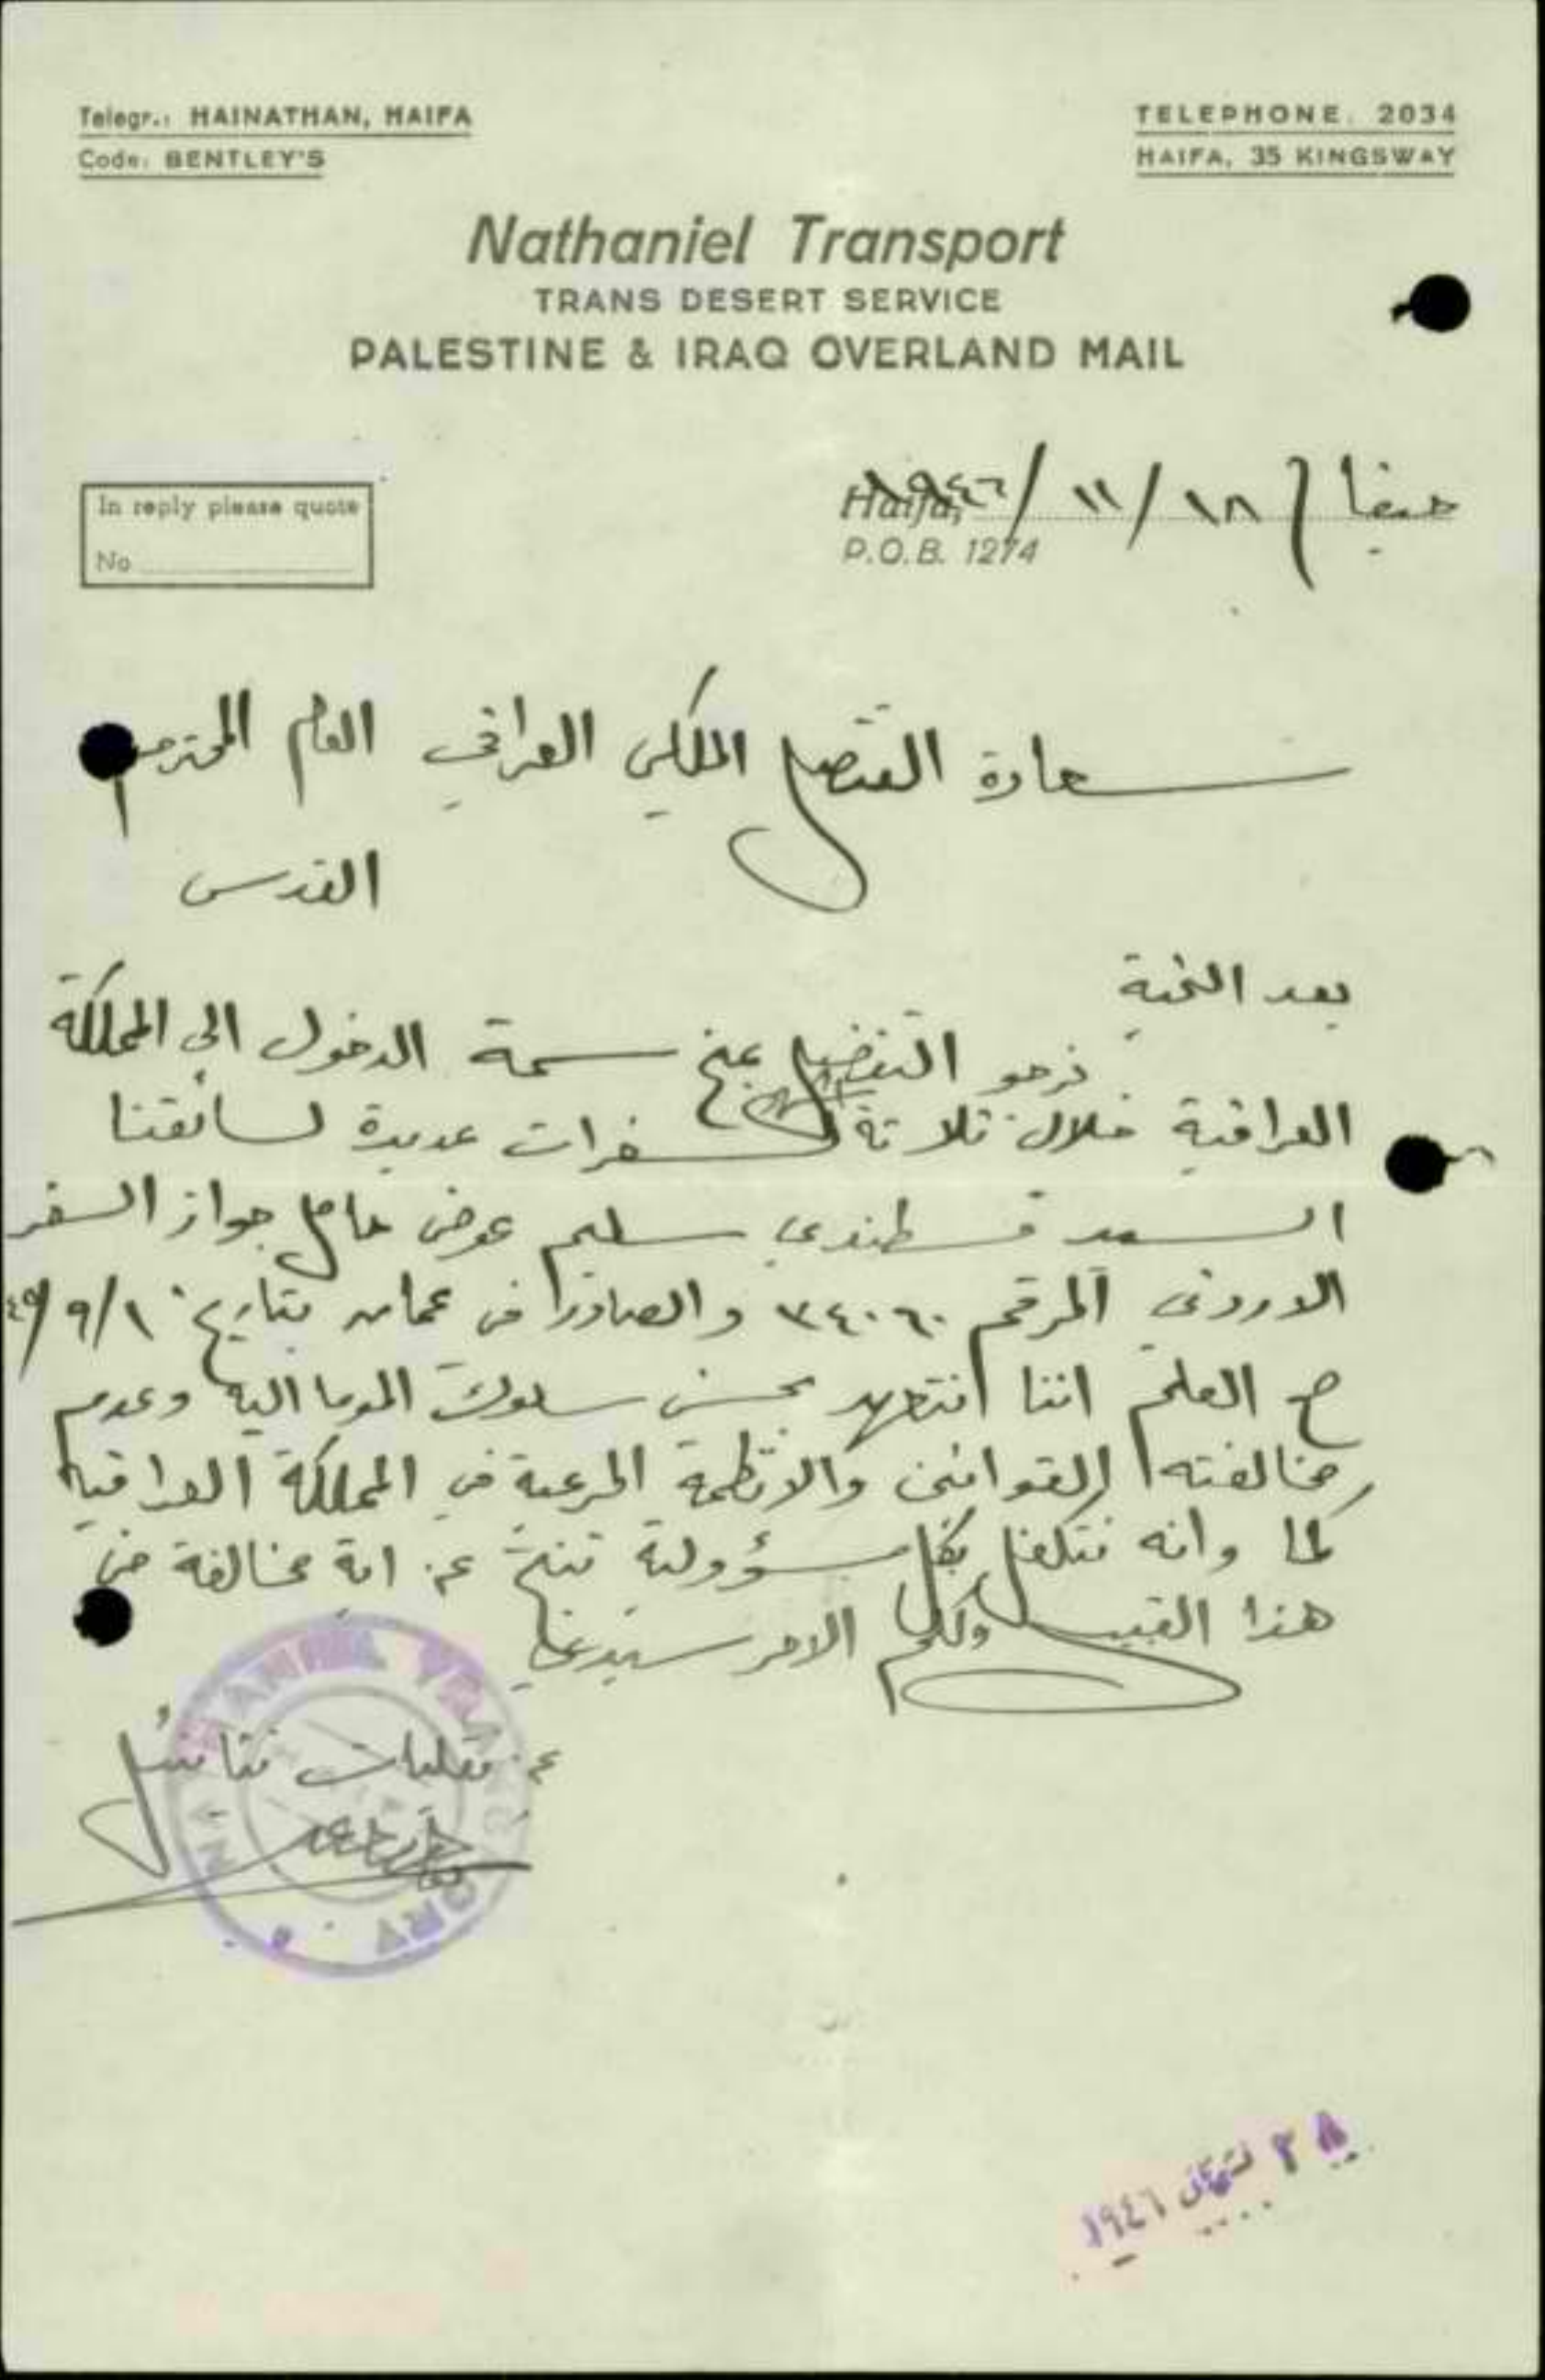 Telegr.: HAINATHAN, HAIFA
Code: BENTLEY'S
TELEPHONE. 2034
HAIFA, 35 KINGSWAY
Nathaniel Transport
TRANS DESERT SERVICE
PALESTINE & IRAQ OVERLAND MAIL
In reply please quote
No
Haifa,
P.O.B. 1274
حيفا / ١٨ / ١١ / ١٩٤٦
سعادة القنصل الملكي العراقي العام المحترم
القدس
بعد التحية
نرجو التفضل بمنح سمة الدخول الى المملكة
العراقية خلال ثلاثة سفرات عديدة لسائقنا
السيد قسطندي سليم عوض حامل جواز السفر
الاردني المرقم ٣٤٠٦٠ والصادر من عمان بتاريخ ١٠/٩/
مع العلم اننا نتعهد بحسن سلوك الموما اليه وعدم
مخالفته القوانين والانظمة المرعية في المملكة العراقية
كما وانه نتكفل بكل مسؤولية تنتج عن اية مخالفة من
هذا القبيل ولكم الامر سيدي
عن نقليات نتانئيل
١٩٤٦